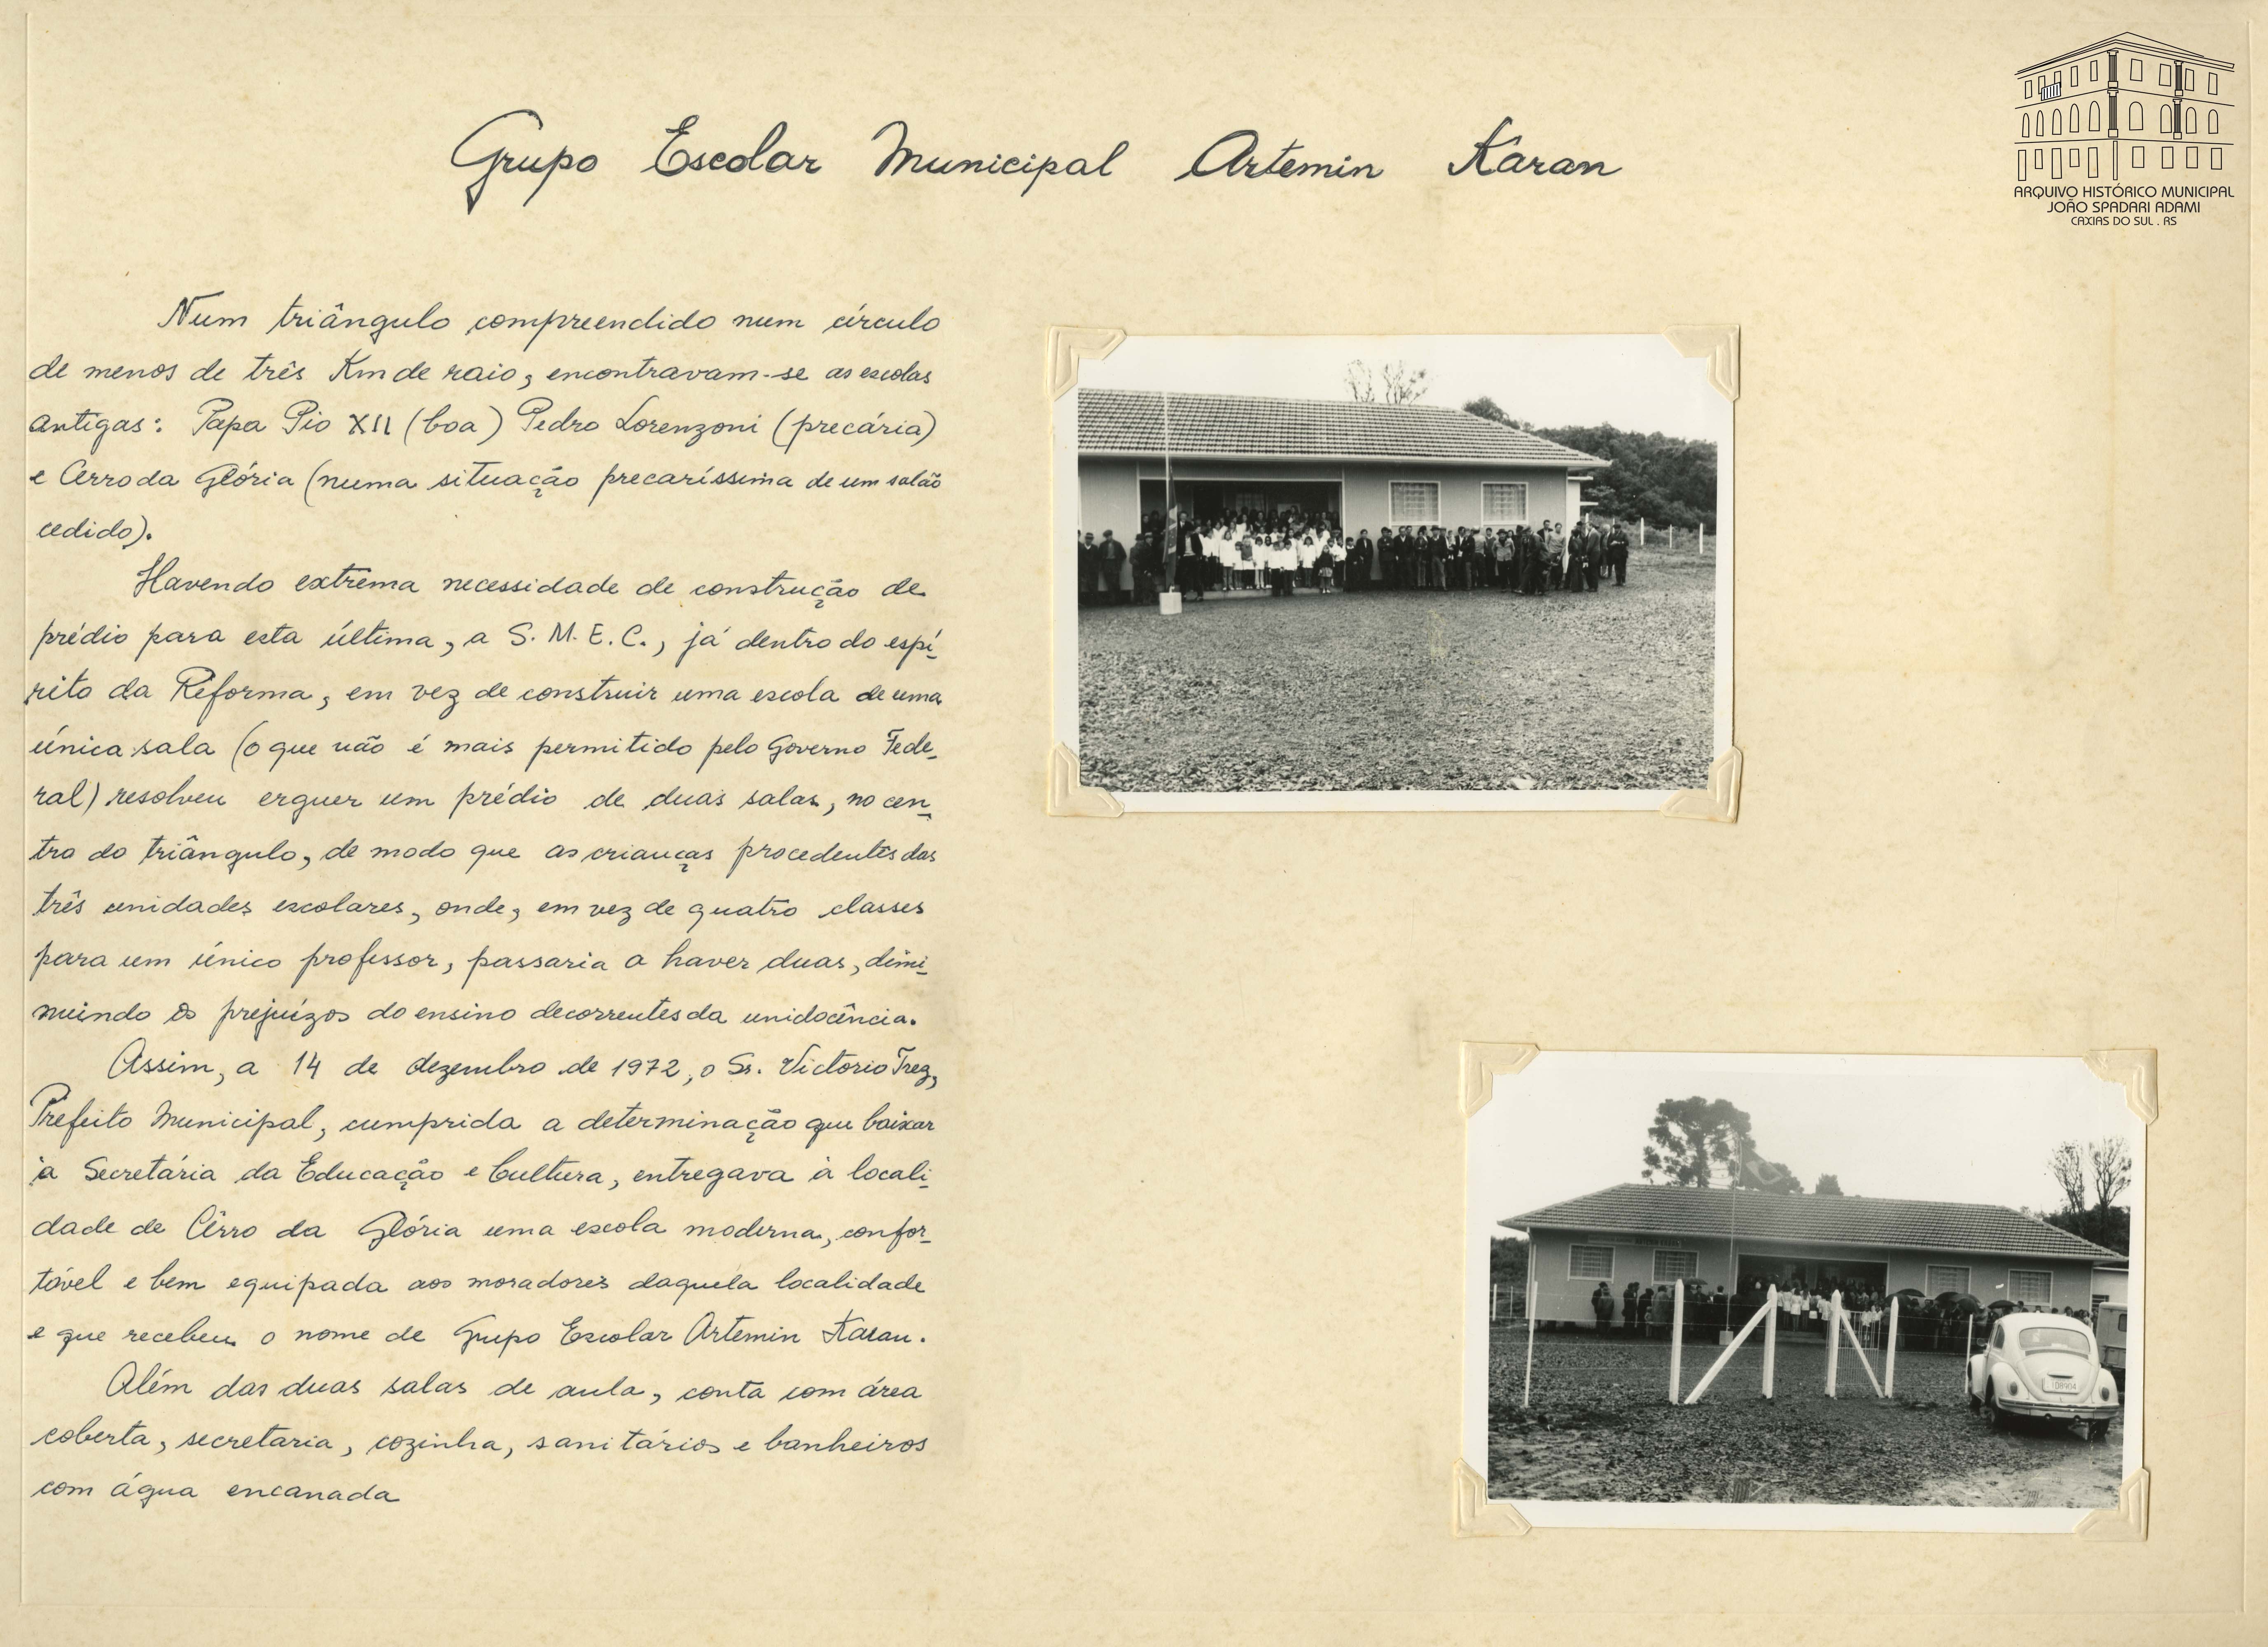 Grupo Escolar Municipal Artemin Karan
ARQUIVO HISTÓRICO MUNICIPAL
JOÃO SPADARI ADAMI
CAXIAS DO SUL . RS
Num triângulo compreendido num círculo
de menos de três Km de raio, encontravam-se as escolas
antigas: Papa Pio XII (boa) Pedro Lorenzoni (precária)
e Cerro da Glória (numa situação precaríssima de um salão
cedido).
Havendo extrema necessidade de construção de
prédio para esta última, a S. M. E. C., já dentro do espí-
rito da Reforma, em vez de construir uma escola de uma
única sala (o que não é mais permitido pelo Governo Fede-
ral) resolveu erguer um prédio de duas salas, no cen-
tro do triângulo, de modo que as crianças procedentes das
três unidades escolares, onde, em vez de quatro classes
para um único professor, passaria a haver duas, dimi-
nuindo os prejuízos do ensino decorrentes da unidocência.
Assim, a 14 de dezembro de 1972, o Sr. Victorio Trez,
Prefeito Municipal, cumprida a determinação que baixar
à Secretária da Educação e Cultura, entregava à locali-
dade de Cêrro da Glória uma escola moderna, confor-
tável e bem equipada aos moradores daquela localidade
e que recebeu o nome de Grupo Escolar Artemin Karan.
Além das duas salas de aula, conta com área
coberta, secretaria, cozinha, sanitários e banheiros
com água encanada